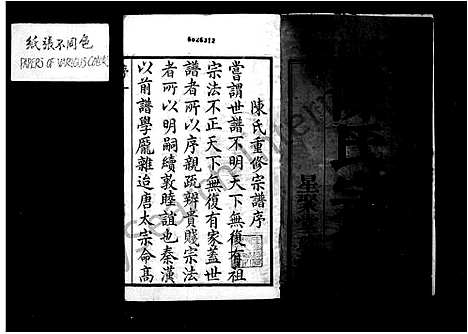 紙張不同色
PAPERS OF VARIOUS COLORS
6026312
陳氏重修宗譜序
嘗謂世譜不明天下無復有祖
宗法不正天下無復有家蓋世
譜者所以序親疏辨貴賤宗法
者所以明嗣續敦睦誼也秦漢
以前譜學龐雜迨唐太宗命高